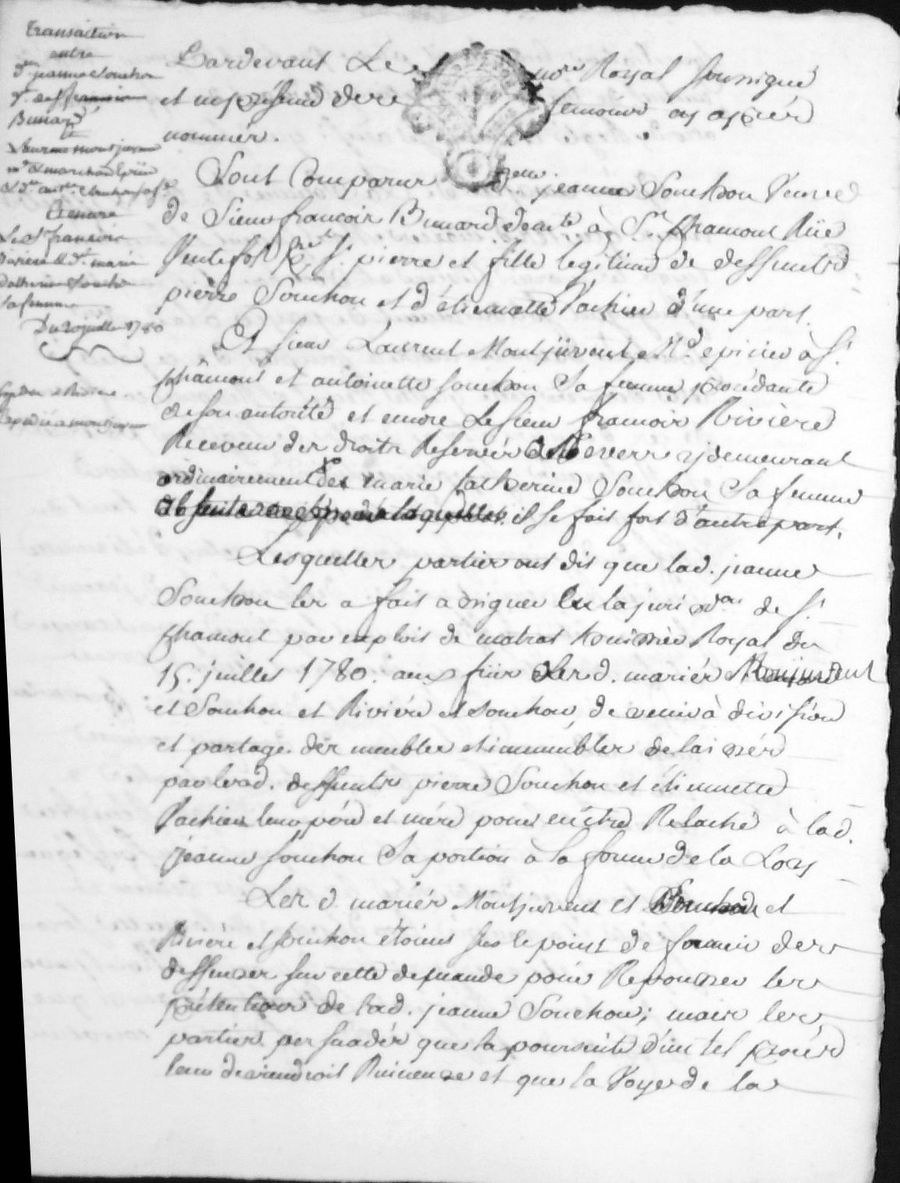 transaction
entre
d.lle jeanne Souchon
v.e de françois
Bunard
et
Laurent montjuvent
m.d
et d.lle ant.te Souchon sa fe
Encore
Le S.r françois
Riviere et d.lle marie
Catherine Souchon
sa femme
Du 20 juillet 1780
Expédié a montjuvent
Pardevant Le no.re Royal soussigné
et en présence des temoins cy après
nommés.
Sont Comparus d.lle jeanne Souchon Veuve
de Sieur françois Bunard de cette à S.t Chamont Rüe
p.sse S.t pierre et fille legitime de deffunts
pierre Souchon et d'étiennette Vachier d'une part.
Et sieur Laurent Montjuvent M.d epicier à S.t
Chamont et antoinette Souchon Sa femme procédante
de son autorité et encore Le sieur françois Riviere
Receveur des droits Reservés de y demeurant
ordinairement et marie Catherine Souchon Sa femme
absente de laquelle il se fait fort d'autre part.
Lesquelles parties ont dit que lad. jeanne
Souchon les a fait assigner en la juri on de S.t
Chamont par exploit de matras huissier Royal du
15. juillet 1780. aux fins Lesd. mariés Montjuvent
et Souchon et Riviere et Souchon, de venir à division
et partage des meubles et immeubles delaissés
par lesd. deffunts pierre Souchon et étiennette
Vachier leurs père et mère pour en être Relaché à lad.
jeanne Souchon Sa portion à la forme de la Loy
Les d. mariés Montjuvent et Souchon et
Riviere et Souchon étoient sur le point de fournir des
deffenses sur cette demande pour Repousser les
prétentions de lad. jeanne Souchon; mais les
parties persuadés que la poursuite d'un tel procès
leur deviendroit Ruineuse et que la Voye de la